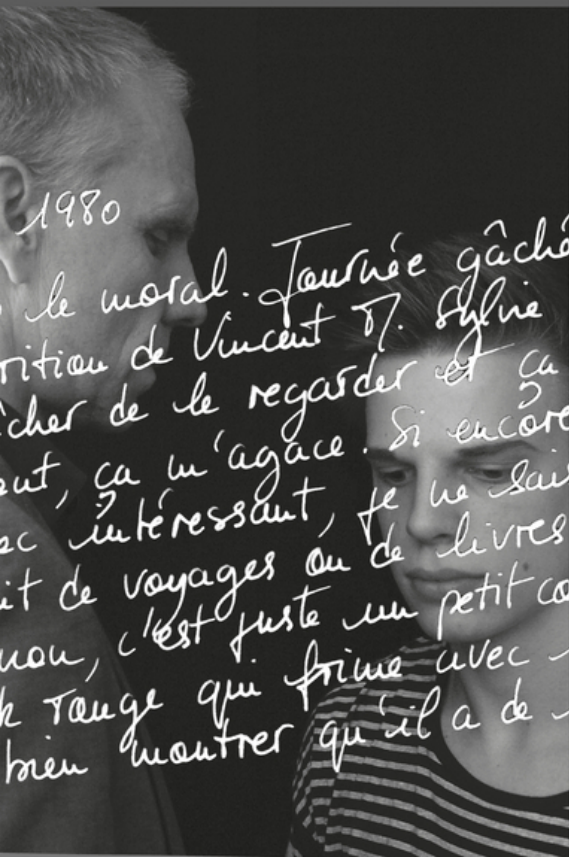 1980
le moral. Journée gâché
rition de Vincent M. Sylvie
cher de le regarder et ça
ent, ça m'agace. Si encore
ec intéressant, je ne sais
it de voyages ou de livres
non, c'est juste un petit co
k rouge qui frime avec
bien montrer qu'il a de